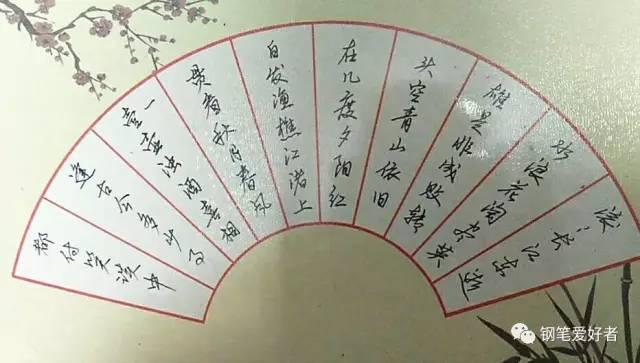 滚〻长江东逝
水浪花淘尽英
雄是非成败转
头空青山依旧
在几度夕阳红
白发渔樵江渚上
惯看秋月春风
一壶浊酒喜相
逢古今多少
都付笑谈中
钢笔爱好者